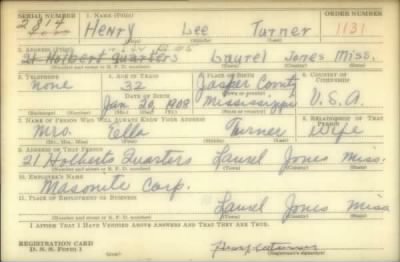 SERIAL NUMBER 1. NAME (Print) ORDER NUMBER
2814 Henry Lee Turner 1131
(First) (Middle) (Last)
2. ADDRESS (Print)
21 Holbert Quarters Laurel Jones Miss.
(Number and street or R. F. D. number) (Town) (County) (State)
3. TELEPHONE 4. AGE IN YEARS 5. PLACE OF BIRTH 6. COUNTRY OF CITIZENSHIP
None 32 Jasper County
DATE OF BIRTH
Jan. 20, 1908 Mississippi U.S.A.
(Exchange) (Number) (Mo.) (Day) (Yr.) (State or country)
7. NAME OF PERSON WHO WILL ALWAYS KNOW YOUR ADDRESS 8. RELATIONSHIP OF THAT PERSON
Mrs. Ella Turner Wife
(Mr., Mrs., Miss) (First) (Middle) (Last)
9. ADDRESS OF THAT PERSON
21 Holberts Quarters Laurel Jones Miss.
(Number and street or R. F. D. number) (Town) (County) (State)
10. EMPLOYER'S NAME
Masonite Corp.
11. PLACE OF EMPLOYMENT OR BUSINESS
Laurel Jones Miss
(Number and street or R. F. D. number) (Town) (County) (State)
I AFFIRM THAT I HAVE VERIFIED ABOVE ANSWERS AND THAT THEY ARE TRUE.
REGISTRATION CARD
D. S. S. Form 1 (over) (Registrant's signature)